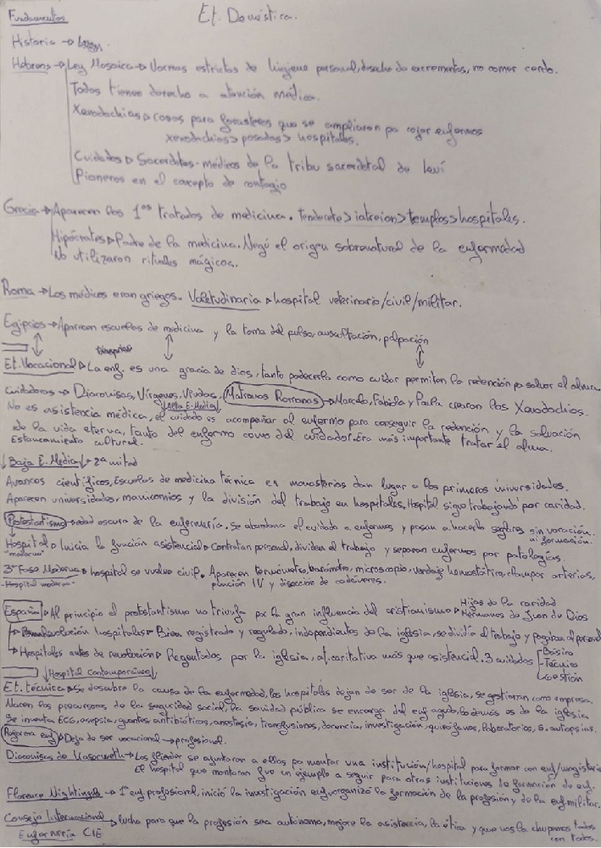 Fundamentos
Et. Doméstica.
Historia →
Hebreos → Ley Mosaica → Normas estrictas de higiene personal, desecho de excrementos, no comer cerdo.
Todos tienen derecho a atención médica.
Xenodochios → casas para forasteros que se ampliaron pa coger enfermos
xenodochios > posadas > hospitales.
Cuidados → Sacerdotes-médicos de la tribu sacerdotal de Leví
Pioneros en el concepto de contagio
Grecia → Aparecen los 1os tratados de medicina. Tenderete > iatreion > templos > hospitales.
Hipócrates → Padre de la medicina. Negó el origen sobrenatural de la enfermedad
No utilizaron rituales mágicos.
Roma → Los médicos eran griegos. Valetudinaria → hospital veterinario/civil/militar.
Egipcios → Aparecen escuelas de medicina y la toma del pulso, auscultación, palpación
Et. Vocacional → La enf. es una gracia de dios, tanto padecerla como cuidar permiten la redención pa salvar el alma
Cuidadoras → Diaconisas, Vírgenes, Viudas, Matronas Romanas → Marcela, Fabiola y Paula crearon los Xenodochios.
Alta E. Media
No es asistencia médica, el cuidado es acompañar al enfermo para conseguir la redención y la salvación
de la vida eterna, tanto del enfermo como del cuidador. Era más importante tratar el alma.
Estancamiento cultural.
↓ Baja E. Media ↓ 2ª mitad
Avances científicos, Escuelas de medicina técnica en monasterios dan lugar a las primeras universidades.
Aparecen universidades, manicomios y la división del trabajo en hospitales. Hospital sigue trabajando por caridad.
Protestantismo → edad oscura de la enfermería. Se abandona el cuidado a enfermos y pasan a hacerlo seglares sin vocación
ni formación.
Hospital moderno → Inicia la función asistencial → Contratan personal, dividen el trabajo y separan enfermos por patologías.
3ª Fase Moderna → hospital se vuelve civil. Aparecen termómetro, barómetro, microscopio, vendaje hemostático, clampar arterias,
-Hospital moderno-
punción IV y disección de cadáveres.
España → Al principio el protestantismo no triunfa px la gran influencia del cristianismo → Hijas de la caridad
Hermanos de Juan de Dios
→ revolución hospitales → Bien registrado y regulado, independientes de la iglesia, se dividía el trabajo y pagaban al personal
→ Hospitales antes de revolución → Regentados por la iglesia, af. caritativa más que asistencial. 3 cuidados
Básico
Técnico
Gestión
↓ Hospital Contemporáneo ↓
Et. técnica → Se descubre la causa de las enfermedad, los hospitales dejan de ser de la iglesia, se gestionan como empresa.
Nacen los precursores de la seguridad social, la sanidad pública se encarga del enf agudo, lo demás es de la iglesia
Se inventa ECG, asepsia, guantes, antibióticos, anestesia, transfusiones, docencia, investigación, quirófanos, laboratorios, S. autopsias.
enf → Deja de ser vocacional → profesional.
Diaconisas de Kaiserwerth → Los Fliedner se ajuntaron a ellas pa montar una institución/hospital para formar con enf/magisterio
El hospital que montaron fue un ejemplo a seguir para otras instituciones la formación de enf.
Florence Nightingale → 1ª enf profesional, inició la investigación enf, organizó la formación de la profesión y de la enf militar.
Consejo Internacional → lucha para que la profesión sea autónoma, mejore la asistencia, la ética y que nos la chupemos todos
Enfermería CIE
con todos.